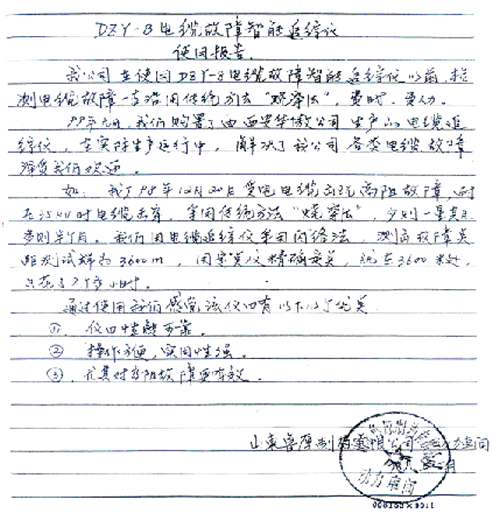 DZY-3电缆故障智能追踪仪
使用报告
我公司在使用DZY-3电缆故障智能追踪仪以前，检
测电缆故障一直沿用传统方法"烧穿法"，费时、费力。
99年元月，我们购置了由西安华傲公司生产的电缆追
踪仪，在实际生产运行中，解决了我公司各类电缆故障
深受我们欢迎。
如：我厂98年12月20日变电电缆出现高阻故障，耐
压35KV时电缆击穿，采用传统方法"烧穿法"，少则一星期
多则半月。我们用电缆追踪仪采用闪络法，测高故障
距测试端为3600m，用定点仪精确定点，就在3600米处，
只花了2个多小时。
通过使用我们感觉该仪器有以下几个优点
①、仪器性能可靠。
②、操作方便，实用性强。
③、尤其对高阻故障更有效。
山东鲁 制药有限公司动力车间
动力车间